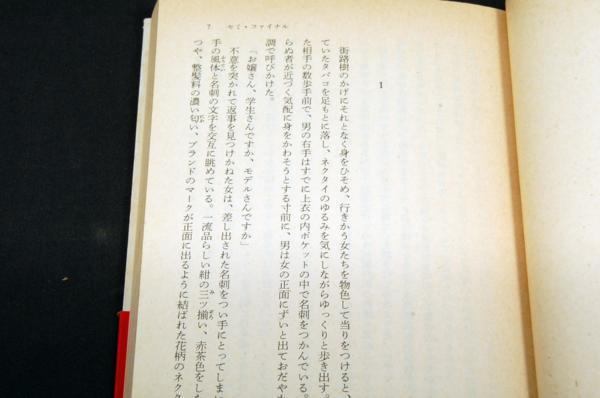 7 セミ・ファイナル
1
街路樹のかげにそれとなく身をひそめ、行きかう女たちを物色して当りをつけると、
ていたタバコを足もとに落し、ネクタイのゆるみを気にしながらゆっくりと歩き出す。
た相手の数歩手前で、男の右手はすでに上衣の内ポケットの中で名刺をつかんでいる。
らぬ者が近づく気配に身をかわそうとする寸前に、男は女の正面にずいと出ておだやか
調で呼びかけた。
「お嬢さん、学生さんですか、モデルさんですか」
不意を突かれて返事を見つけかねた女は、差し出された名刺をつい手にとってしまい
手の風体と名刺の文字を交互に眺めている。一流品らしい紺の三ツ揃い、赤茶色をした
つや、整髪料の濃い匂い、ブランドのマークが正面に出るように結ばれた花柄のネクタ